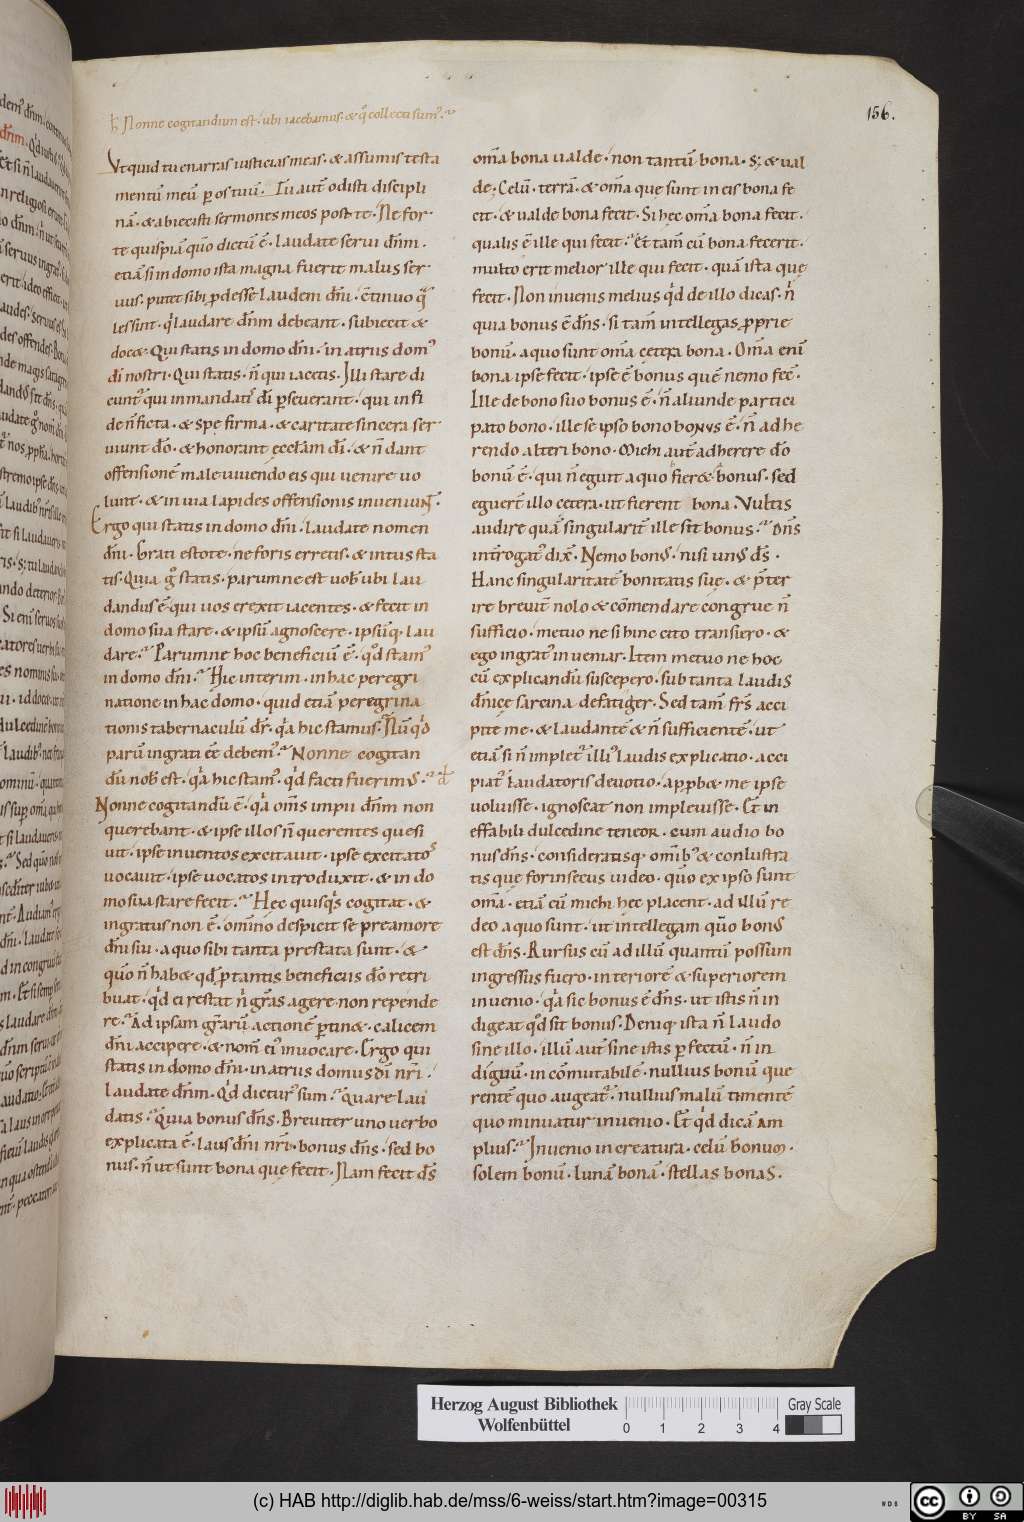 Nonne cogitandum est. ubi iacebamus. & qͥ collecti sumꝰ.
156.
Vt quid tu enarras iusticias meas. & assumis testa
mentū meū ꝑ os tuū. Tu aut̄ odisti discipli
nā. & abiecisti sermones meos post te. Ne for
te quispiā quō dictū ē. laudate serui dn̄m.
etiā si in domo ista magna fuerit malus ser
uus. putet sibi ꝓdesse laudem dn̄i. c̄tinuo q̄
les sint. qͥ laudare dn̄m debeant. subiecit &
doc&. Qui statis in domo dn̄i. in atriis domꝰ
dī nostri. Qui statis. n̄ qui iacetis. Illi stare di
cunt᷑ qui in mandatꝭ dī ꝑseuerant. qui in fi
de n̄ ficta. & spe firma. & caritate sincera ser
uiunt dō. & honorant ęcclam̄ dī. & n̄ dant
offensionē male uiuendo eis qui uenire uo
lunt. & in uia lapides offensionis inueniunt᷑.
Ergo qui statis in domo dn̄i. laudate nomen
dn̄i. Grati estote. ne foris erretis. & intus sta
tis. Quia g̊ statis. parumne est uob̄ ubi lau
dandus ē qui uos erexit iacentes. & fecit in
domo sua stare. & ipsū agnoscere. ipsūq. lau
dare. Parumne hoc beneficiū ē. qd̄ stamꝰ
in domo dn̄i. Hic interim. in hac peregri
natione in hac domo. quid etiā peregrina
tionis tabernaculū dr̄. qͣ hic stamus. Nū qͥd
parū ingrati eē debemꝰ. Nonne cogitan
dū nob̄ est. qͣ hic stamꝰ. qͥd facti fuerimꝰ.
Nonne cogitandū ē. qͣ om̄s impii dn̄m non
querebant. & ipse illos n̄ querentes quesi
uit. ipse inuentos excitauit. ipse excitatos
uocauit. ipse uocatos introduxit. & in do
mo sua stare fecit. Hec quisqͥs cogitat. &
ingratus non ē. om̄ino despicit se pre amore
dn̄i sui. a quo sibi tanta prestata sunt. &
quō n̄ hab& qd̄ ꝓ tantis beneficiis dō retri
buat. qͥd ei restat n̄ gr̄as agere non repende
re. Ad ipsam gr̄arū actionē ꝑtin&. calicem
dn̄i accipere. & nom̄ eiꝰ inuocare. Ergo qui
statis in domo dn̄i. in atriis domus dī nr̄i.
laudate dn̄m. Qͥd dicturꝰ sum. Quare lau
datis. Quia bonus dn̄s. Breuiter uno uerbo
explicata ē. laus dn̄i nr̄i. bonus dn̄s. sed bo
nus. n̄ ut sunt bona que fecit. Nam fecit ds̄
om̄a bona ualde. non tantū bona. s; & ual
de; Celū. terrā. & om̄a que sunt in eis bona fe
cit. & ualde bona fecit. Si hec om̄a bona fecit.
qualis ē ille qui fecit. Et tam̄ cū bona fecerit.
multo erit melior ille qui fecit. quā ista que
fecit. Non inuenis melius qͥd de illo dicas. n̄
quia bonus ē dn̄s. si tam̄ intellegas ꝓprie
bonū. a quo sunt om̄a cetera bona. Om̄a enī
bona ipse fecit. ipse ē bonus quē nemo fec̄.
Ille de bono suo bonus ē. n̄ aliunde partici
pato bono. ille se ipso bono bonus ē. n̄ adhe
rendo alteri bono. Michi aut̄ adherere dō
bonū ē. qui n̄ eguit a quo fier& bonus. sed
eguer̄t illo cetera. ut fierent bona. Vultis
audire quā singularit̄ ille sit bonus. Dn̄s
int̄rogatꝰ dix̄. Nemo bonꝰ. nisi unꝰ ds̄.
Hanc singularitatē bonitatis suę. & p̄ter
ire breuit̄ nolo & cōmendare congrue n̄
sufficio. metuo ne si hinc cito transiero. &
ego ingratꝰ inueniar. Item metuo ne hoc
cū explicandū suscepero. sub tanta laudis
dn̄icę sarcina defatiger. Sed tam̄ fr̄s acci
pite me. & laudantē & n̄ sufficientē. ut
etiā si n̄ implet᷑ illiꝰ laudis explicatio. acci
piat᷑ laudatoris deuotio. approb& me ipse
uoluisse. ignoscat non impleuisse. Et in
effabili dulcedine teneor. cum audio bo
nus dn̄s. consideratisq. om̄ibꝰ & conlustra
tis que forinsecus uideo. quō ex ipso sunt
om̄a. etiā cū michi hec placent. ad illū re
deo a quo sunt. ut intellegam quō bonꝰ
est dn̄s. Rursus cū ad illū quantū possum
ingressus fuero. interiorē & superiorem
inuenio. qͣ sic bonus ē dn̄s. ut istis n̄ in
digeat qd̄ sit bonus. Deniq. ista n̄ laudo
sine illo. illū aut̄ sine istis ꝑfectū. n̄ in
diguū. incōmutabilē. nullius bonū que
rentē quo augeat᷑. nullius malū timentē
quo minuatur inuenio. Et qͥd dicā am
plius. Inuenio in creatura. celū bonum.
solem bonū. lunā bonā. stellas bonas.
Herzog August Bibliothek
Wolfenbüttel
0 1 2 3 4
Gray Scale
(c) HAB http://diglib.hab.de/mss/6-weiss/start.htm?image=00315
WDB
cc BY SA